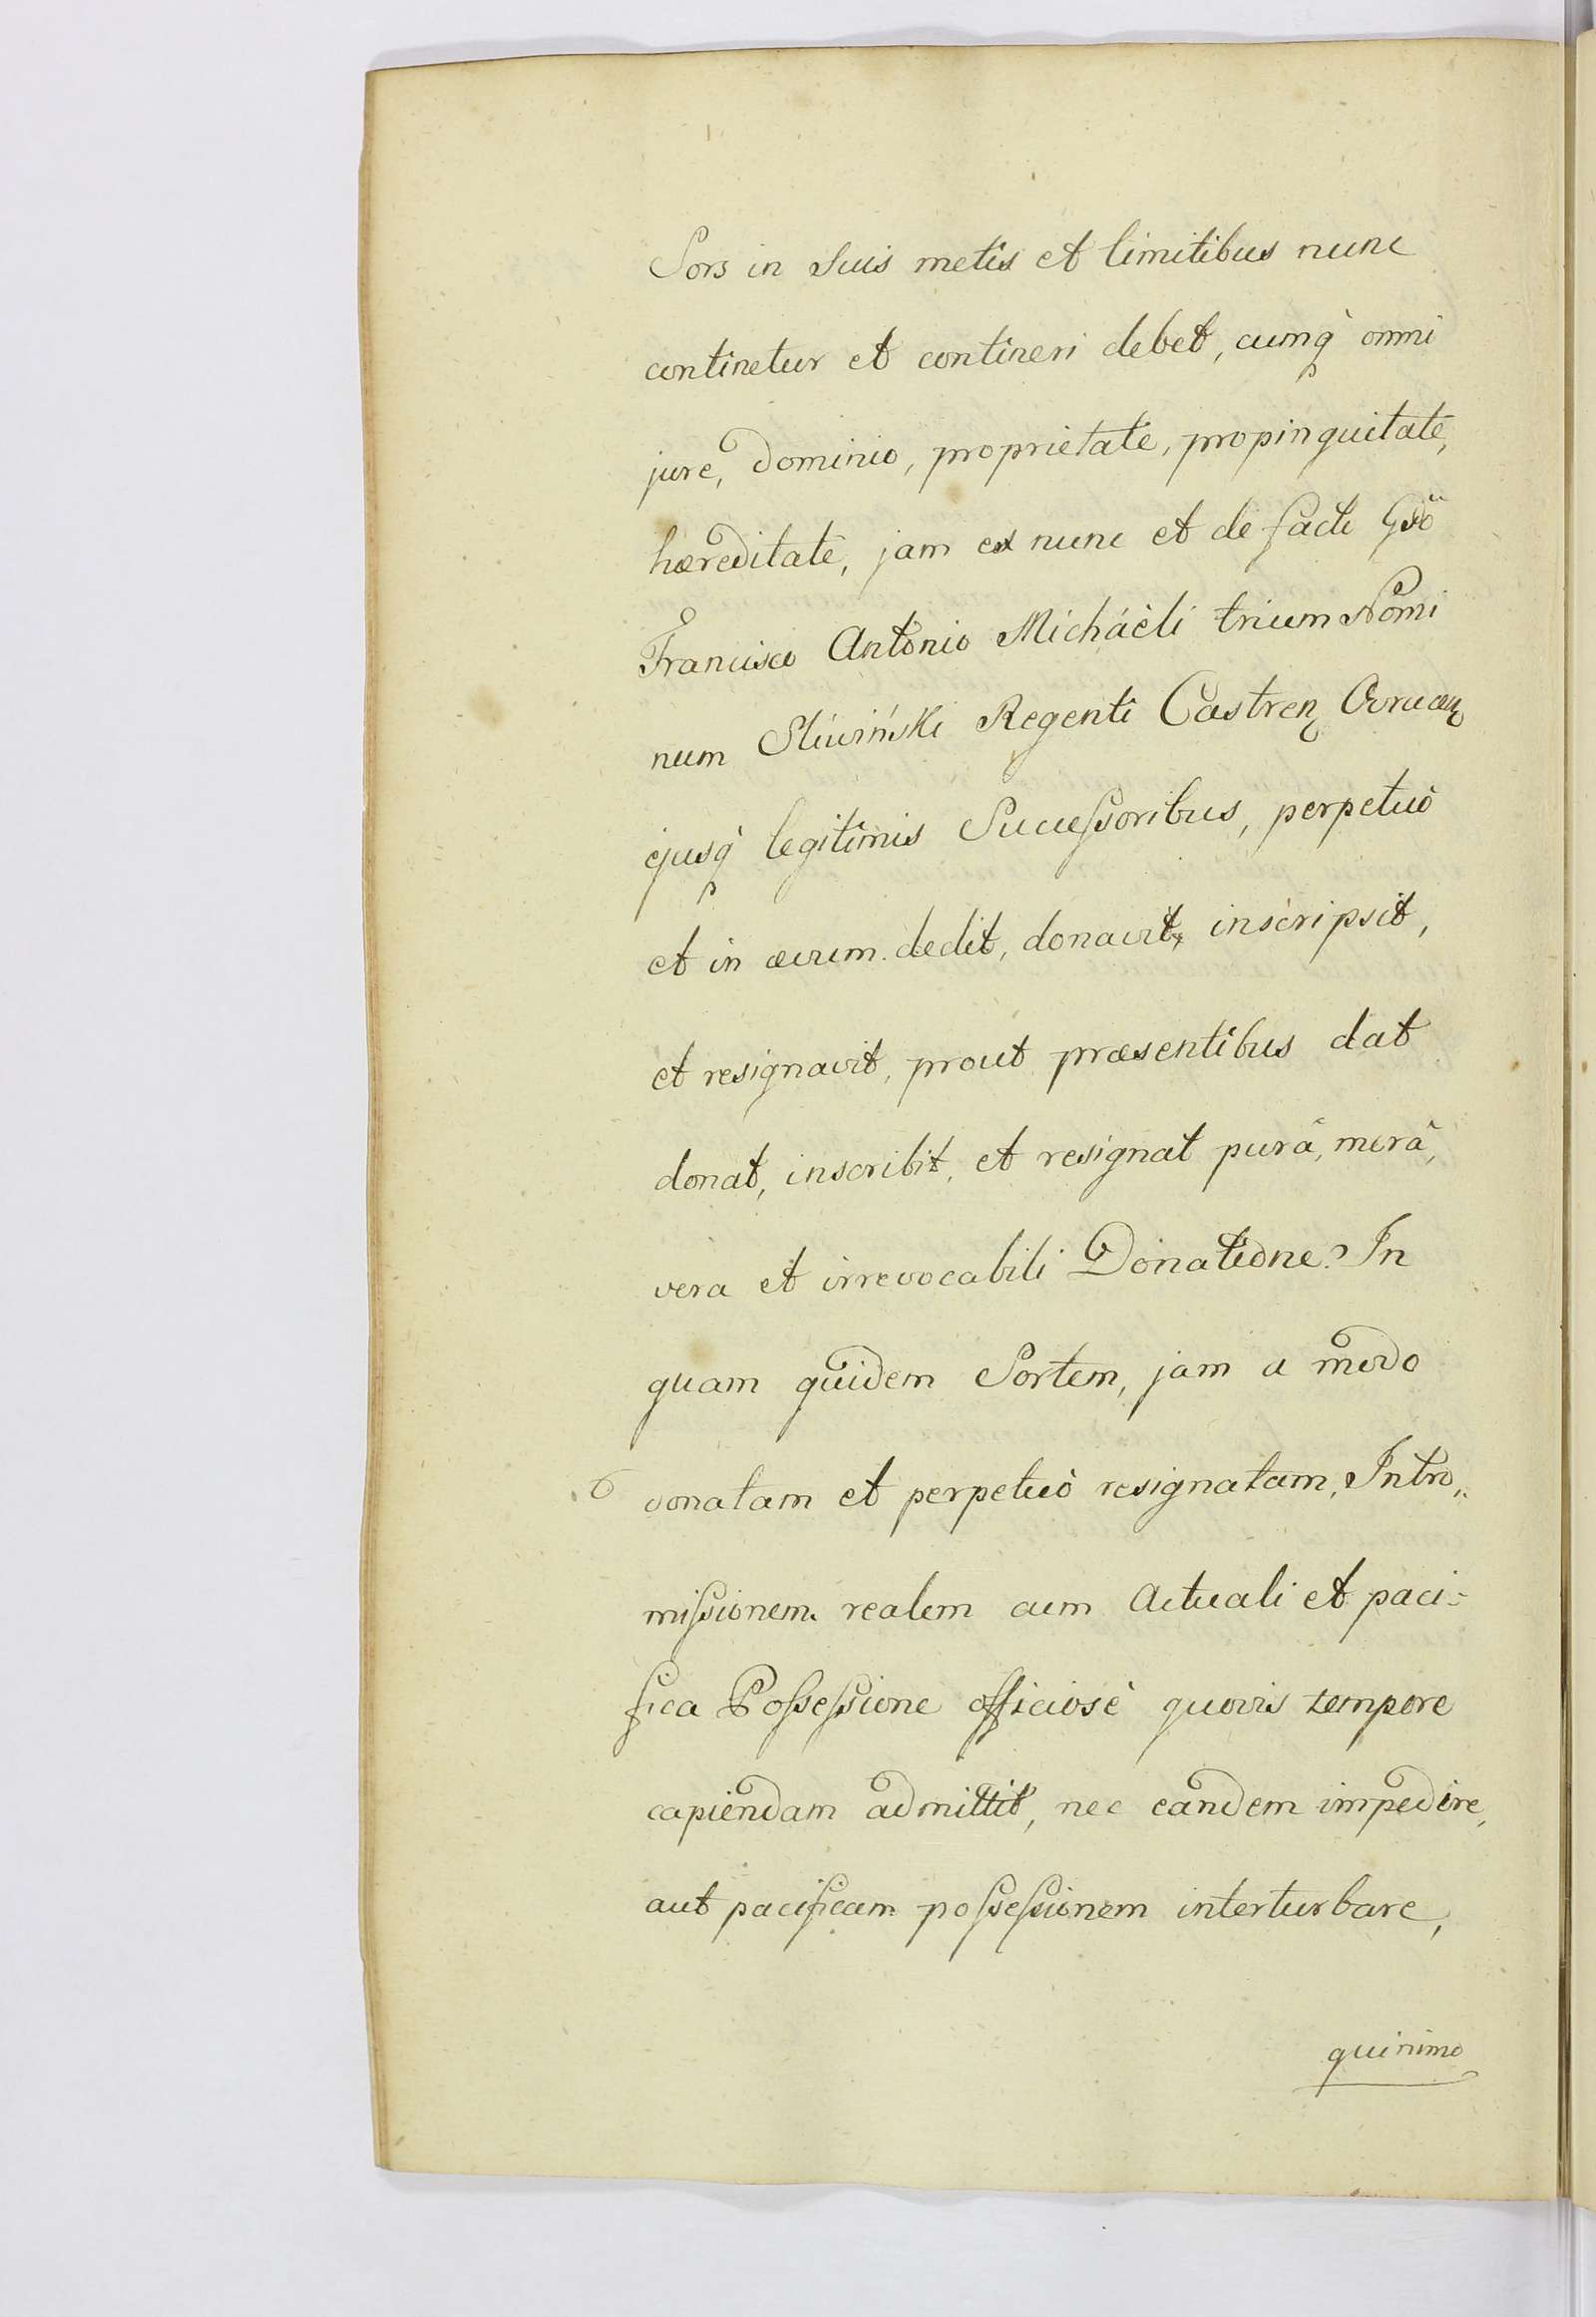 Sors in suis metis et limitibus nunc
continetur et contineri debet, cumq̀ omni
jure, dominio, proprietate, propinquitate,
hæreditate, jam ex nunc et de facti Gsõ
Francisco Antonio Michaèli trium Nomi
num Sliwiński Regenti Castren Ovrucen
ejusq̀ legitimis Successoribus, perpetuò
et in ævum dedit, donavit, inscripsit,
et resignavit, prout præsentibus dat
donat, inscribit, et resignat purâ, merâ,
vera et irrevocabili Donatione. In
quam quidem Sortem, jam a modo
donatam et perpetuò resignatam, Intro,,
missionem realem cum Actuali et paci-
fica Possessione officiosè quovis tempore
capiendam admittit, nec eandem impedire,
aut pacificam possessionem interturbare,
quinimo